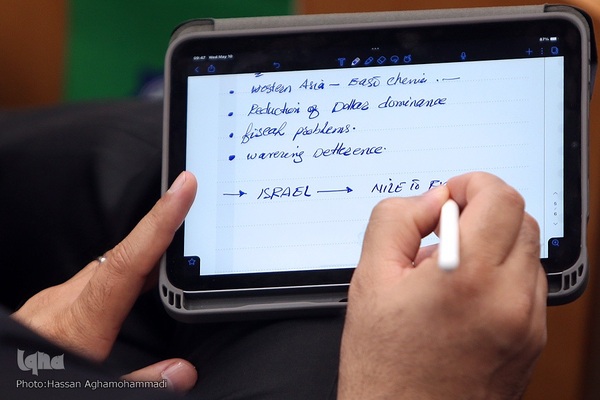 09:47 Wed May 10
87%
• Western Asia —
• Reduction of Dollar dominance
• fiscal problems.
• wavering Detterence.
→ ISRAEL → NILE TO
iqna
Photo:Hassan Aghamohammadi